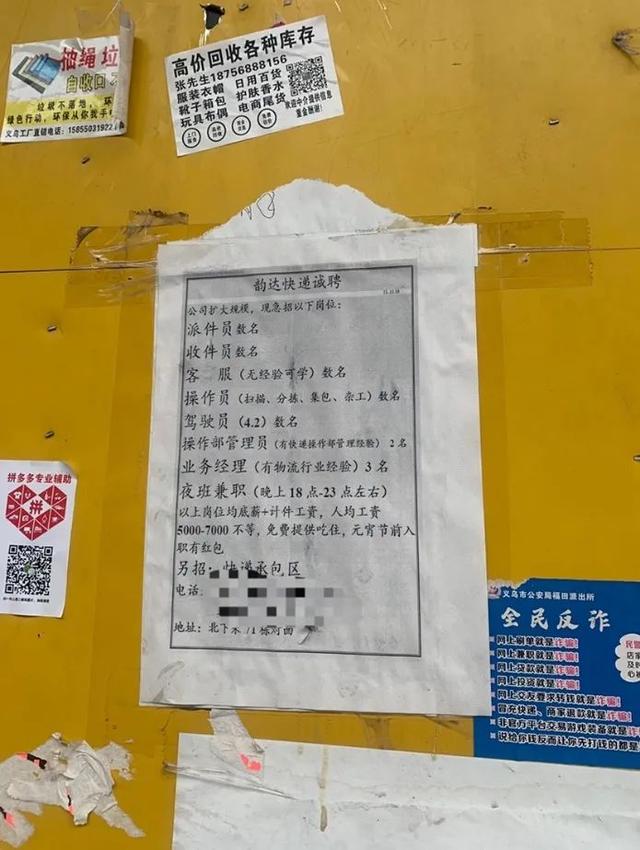 抽绳垃
自收口
垃圾不落地，环
绿色行动，环保从你我手
义乌工厂直销电话：15855031922
高价回收各种库存
张先生18756888156
服装衣帽 日用百货
鞋子箱包 护肤香水
玩具布偶 电商尾货
欢迎中介提供信息
重金酬谢!
韵达快递诚聘
公司扩大规模，现急招以下岗位：
派件员数名
收件员数名
客 服（无经验可学）数名
操作员（扫描、分拣、集包、杂工）数名
驾驶员（4.2）数名
操作部管理员（有快递操作部管理经验） 2名
业务经理（有物流行业经验）3名
夜班兼职（晚上18点-23点左右）
以上岗位均底薪+计件工资，人均工资
5000-7000不等，免费提供吃住，元宵节前入
职有红包
另招：快递承包区
电话：
地址：北下朱 71栋对面
拼多多专业辅助
拼
义乌市公安局福田派出所
全民反诈
网上刷单就是诈骗!
网上兼职就是诈骗!
网上贷款就是诈骗!
网上投资就是诈骗!
网上交友要求转钱就是诈骗!
冒充快递、商家退款就是诈骗!
非官方平台交易游戏装备就是诈
说给你钱反而让你先打钱的都是